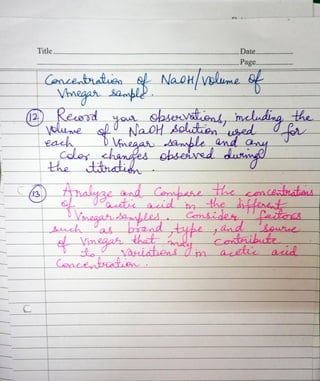 Title
Date
Page
Concentration of NaOH/Volume of
Vinegar sample.
(12) Record your observations, including the
volume of NaOH solution used for
each Vinegar sample and any
Color changes observed during
the titration.
(13) Analyze and Compare the concentrations
of acetic acid in the different
Vinegar samples. Consider factors
such as brand, type, and source
of Vinegar that may contribute
to variations in acetic acid
Concentration.